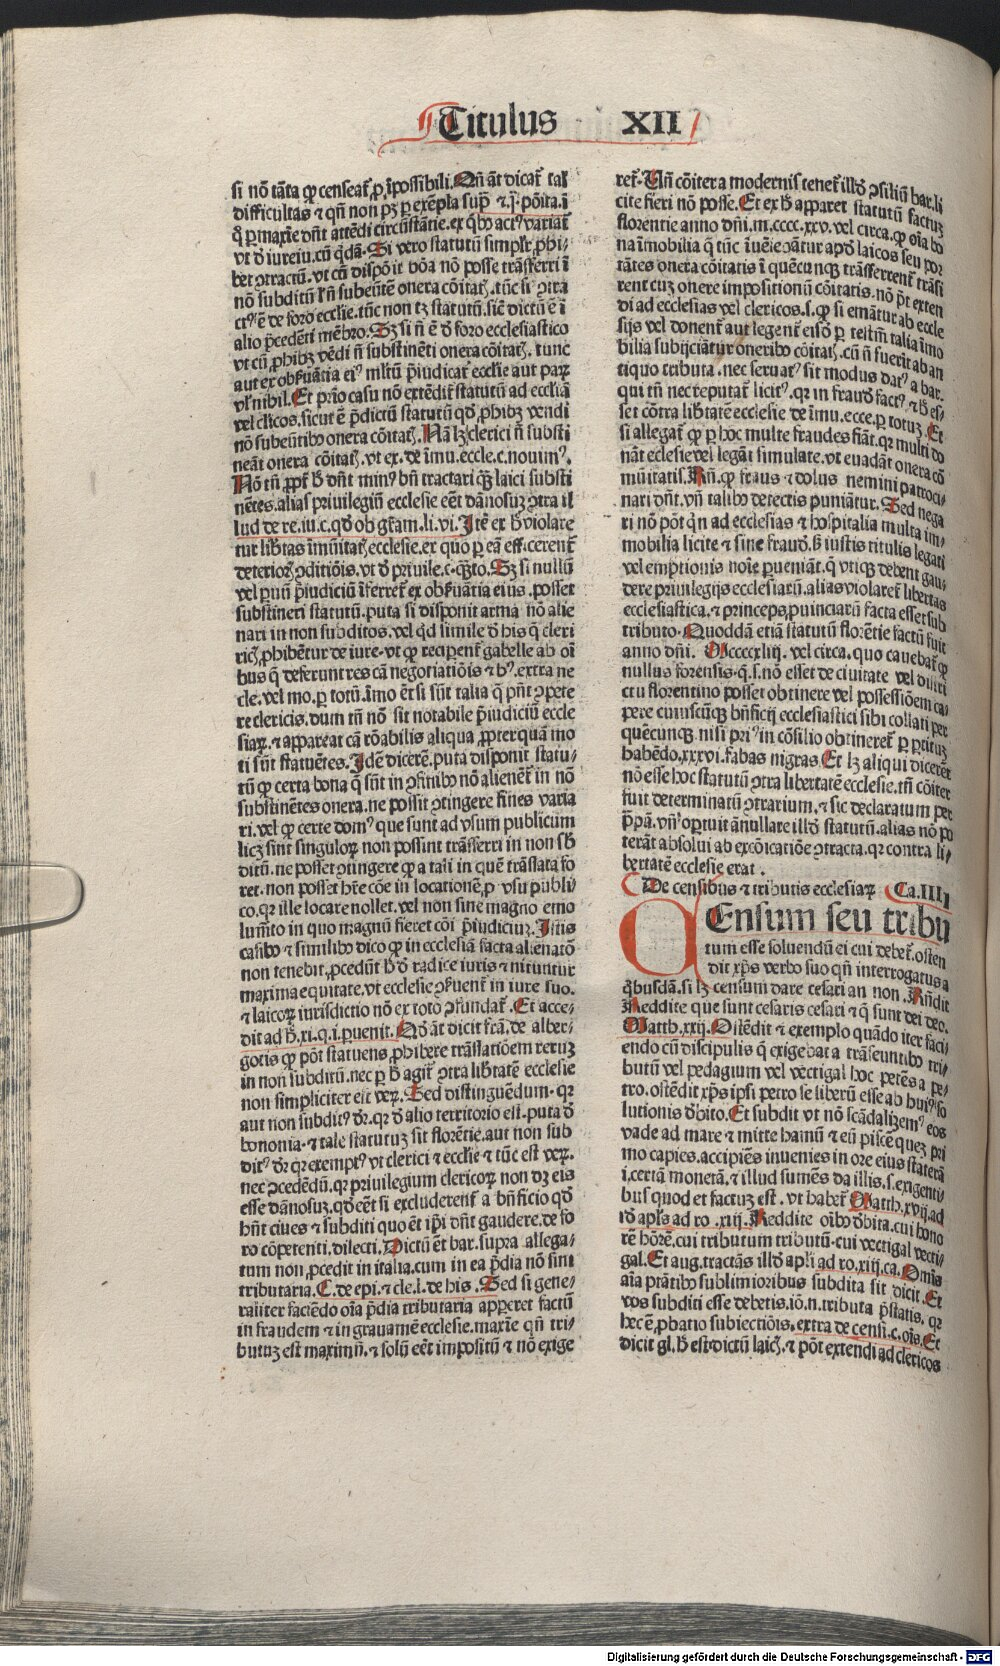 Titulus XII
si nō tāta ꝙ censeat᷑ ꝓ īpossibili. Qn̄ āt dicat᷑ tal
difficultas ⁊ qn̄ non pꝫ ꝑ exēpla sup̄ ⁊.j. pōita.ī
vt ꝺ iureiu. cū q̄dā. Si vero statutū simplr̄ ꝓhi-
bet ꝯtractū. vt cū dispōit bōa nō posse trāsferri ī
nō subditū l̓ n̄ subeūtē onera cōitatꝭ. tūc si ꝯtra
ctꝰ ē de foro ecclīe. tūc non tꝫ statutū. sic̄ dictū ē ī
alio p̄cedēti mēbro. Sꝫ si n̄ ē ꝺ foro ecclesiastico
vt cū ꝓhibꝫ vēdi n̄ substinēti onera cōitatꝭ. tunc
aut ex obẜuātia eiꝰ mltū p̄iudicat᷑ ecclīe aut paꝝ
vl̓ nihil. Et prio casu nō extēdit᷑ statutū ad ecclīā
vel cl̓icos. sicut ē p̄dictū statutū qd̓ ꝓhibꝫ vendi
nō subeūtibꝰ onera cōitatꝭ. Nā lꝫ clerici n̄ substi
neāt onera cōitatꝭ. vt ex. de īmu. eccle. c. nouimꝰ.
Nō tn̄ ꝓpt᷑ ħ dn̄t minꝰ bn̄ tractari qꝫ laici substi
nētes. alias priuilegiū ecclesie eēt dānosuꝫ ꝯtra il
lud de re. iu. c. qd̓ ob gr̄am. li. vi. Itē ex ħ violare
tur lib̓tas īmūitatꝭ ecclesie. ex quo ꝑ eā eff.cerent᷑
deterioꝝ ꝯditiōis. vt ꝺ priuile. c. qꝫto. Sꝫ si nullū
vel ꝑuū p̄iudiciū īferret᷑ ex obẜuātia eius. posset
substineri statutū. puta si disponit arma nō alie
nari in non subditos. vel qd̓ simile ꝺ his q̄ cleri
ricꝭ ꝓhibētur de iure. vt ꝙ reciperent᷑ gabelle ab oī
bus q̄ deferunt res cā negotiatiōis ⁊ hꝰ. extra ne
cle. vel mo. ꝑ totū. īmo ēt si sūt talia q̄ pn̄t ꝯpete
re clericis. dum tn̄ nō sit notabile p̄iudiciū eccle
siaꝝ. ⁊ appareat cā rōabilis aliqua ꝓpter quā mo
ti sūt statuētes. Idē dicerē. puta disponit statu-
tū ꝙ certa bona q̄ sūt in ꝯfinibꝰ nō alienēt᷑ in nō
substinētes onera. ne possit ꝯtingere fines varia
ri. vel ꝙ certe domꝰ que sunt ad vsum publicum
licꝫ sint singuloꝝ non possint trāsferri in non sb̓
ditū. ne posset ꝯtingere ꝙ a tali in quē trāslata fo
ret. non posset hr̄e cōe in locationē. ꝓ vsu publi
co. qꝛ ille locare nollet. vel non sine magno emo
lum̄to in quo magnū fieret cōi p̄iudiciuꝫ. In his
casibꝰ ⁊ similibꝰ dico ꝙ in ecclesiā facta alienatō
non tenebit᷑. ꝓcedūt ħ ꝺ radice iuris ⁊ nituntur
maxima equitate. vt ecclesie ꝯfluent᷑ in iure suo.
⁊ laicoꝝ iurisdictio nō ex toto ꝯfundat᷑. Et acce-
dit ad ħ. xi. q. i. ꝑuenit. Nō āt dicit frā. de alber-
gotis ꝙ pōt statuens ꝓhibere trāslatiōem reruꝫ
in non subditū. nec ꝑ ħ agit᷑ ꝯtra lib̓tatē ecclesie
non simpliciter est veꝝ. Sed distinguēdum. qꝛ
aut non subditꝰ dr̄. qꝛ ꝺ alio territorio est. puta ꝺ
bononia. ⁊ tale statutuꝫ sit florētie. aut non sub
ditꝰ dr̄ qꝛ exemptꝰ vt clerici ⁊ ecclīe ⁊ tūc est veꝝ.
nec ꝯcedēdū. qꝛ priuilegium clericoꝝ non dꝫ eis
esse dānosuꝫ. qd̓ eēt si excluderent᷑ a bn̄ficio qd̓
hn̄t ciues ⁊ subditi quo ēt ip̄i dn̄t gaudere. de fo
ro cōpetenti. dilecti. Dictū ēt bar. supra allega-
tum non ꝓcedit in italia. cum in ea p̄dia nō sint
tributaria. C. de epi. ⁊ cle. l. de his. Sed si gene-
raliter faciēdo oīa p̄dia tributaria apꝑeret factū
in fraudem ⁊ in grauamē ecclesie. maxīe qn̄ tri-
butuꝫ est maximū. ⁊ solū eēt impositū ⁊ nō exige
ret᷑. Un̄ cōiter a modernis tenet᷑ illd̓ ꝯsiliū bar. li
cite fieri nō posse. Et ex ħ apparet statutū factuꝫ
florentie anno dn̄i. m. cccc. xxv. vel circa. ꝙ oīa bo
na īmobilia q̄ tūc īueniebātur apd̓ laicos seu por
tātes onera cōitatis ī quēcunqꝫ trāsferrent᷑ trāsi
rent cuꝫ onere impositionū cōitatis. nō p̄t exten
di ad ecclesias vel clericos. s. ꝙ si emāt᷑ur ab eccle
sijs vel donent᷑ aut legent᷑ eisꝺ ꝑ testm̄ talia īmo
bilia subijciāt᷑ur oneribꝰ cōitatꝭ. cū n̄ fuerīt ab an
tiquo tributa. nec seruat᷑ sit modus datꝰ a bar.
qui tn̄ nec reputat᷑ licitꝰ. qꝛ in fraudē factꝰ. ⁊ ħ es-
set cōtra lib̓tatē ecclesie de īmu. ecce. ꝑ totuꝫ. Et
si allegat᷑ ꝙ ꝑ hoc multe fraudes fiāt. qꝛ multi do
nāt ecclesie vel legāt simulate. vt euadāt onera cō
mūitatis. Rn̄. ꝙ fraus ⁊ dolus nemini patroci-
nari dn̄t. vn̄ talibꝰ detectis puniātur. Sed nega
ri nō pōt qn̄ ad ecclesias ⁊ hospitalia multa im-
mobilia licite ⁊ sine fraudē. ħ iustis titulis legati
vel emptionis noīe ꝑueniāt. q̄ vtiqꝫ debent gau-
dere priuilegijs ecclesiarū. alias violaret᷑ libertas
ecclesiastica. ⁊ princeps ꝓuinciarū facta esset sub
tributo. Quoddā etiā statutū florētie factū fuit
anno dn̄i. Mccccxliij. vel circa. quo cauebat᷑ ꝙ
nullus forensis. q. s. nō esset de ciuitate vel distri
ctu florentino posset obtinere vel possessiōem ca-
pere cuiuscūqꝫ bn̄ficij ecclesiastici sibi collati per
quēcunqꝫ nisi priꝰ in cōsilio obtineret᷑ ꝑ ꝑtituꝫ
habēdo. xxxvi. fabas nigras. Et lꝫ aliqui dicerēt
nō esse hoc statutū ꝯtra libertatē ecclesie. tn̄ cōiter
fuit determinatū ꝯtrarium. ⁊ sic declaratum per
pp̄ā. vn̄ oportuit ānullare illd̓ statutū. alias nō po
terāt absolui ab excōicatiōe ꝯtracta. qꝛ contra li-
bertatē ecclesie erat.
De censibus ⁊ tributis ecclesiaꝝ Ca. IIII
CEnsum seu tribu
tum esse soluendū ei cui debet᷑. osten
dit xp̄s verbo suo qn̄ interrogatus a
q̄busdā. si lꝫ censum dare cesari an non. Rn̄dit
Reddite que sunt cesaris cesari ⁊ q̄ sunt dei deo.
Matth. xxij. Ostēdit ⁊ exemplo quādo iter faci-
endo cū discipulis q̄ exigebat a trāseuntibꝰ tri-
butū vel pedagium vel vectigal hoc petēs a pe-
tro. ostēdit xp̄s ipsi petro se liberū esse ab huiꝰ so
lutionis ꝺbito. Et subdit vt nō scādalizemꝰ eos
vade ad mare ⁊ mitte hamū ⁊ eū piscē quez pri
mo capies. accipiēs inuenies in ore eius staterā
i. certā monetā. ⁊ illud sumēs da illis. s. exigenti
bus quod et factuꝫ est. vt habet᷑ Matth. xvij. ad
iꝺ apl̓s ad ro. xiij. Reddite oībꝰ ꝺbita. cui hono
rē hōrē. cui tributum tributū. cui vectigal vecti-
gal. Et aug. tractās illd̓ apl̓i ad ro. xiij. ca. Omīs
aīa ptātibꝰ sublimioribus subdita sit dicit. Et
vos subditi esse debetis. iō. n. tributa p̄statis. qꝛ
hec ē ꝓbatio subiectiōis. extra de censi. c. oīs. Et
dicit gl. ħ est dictū laicꝭ. ⁊ pōt extendi ad clericos
Digitalisierung gefördert durch die Deutsche Forschungsgemeinschaft - DFG